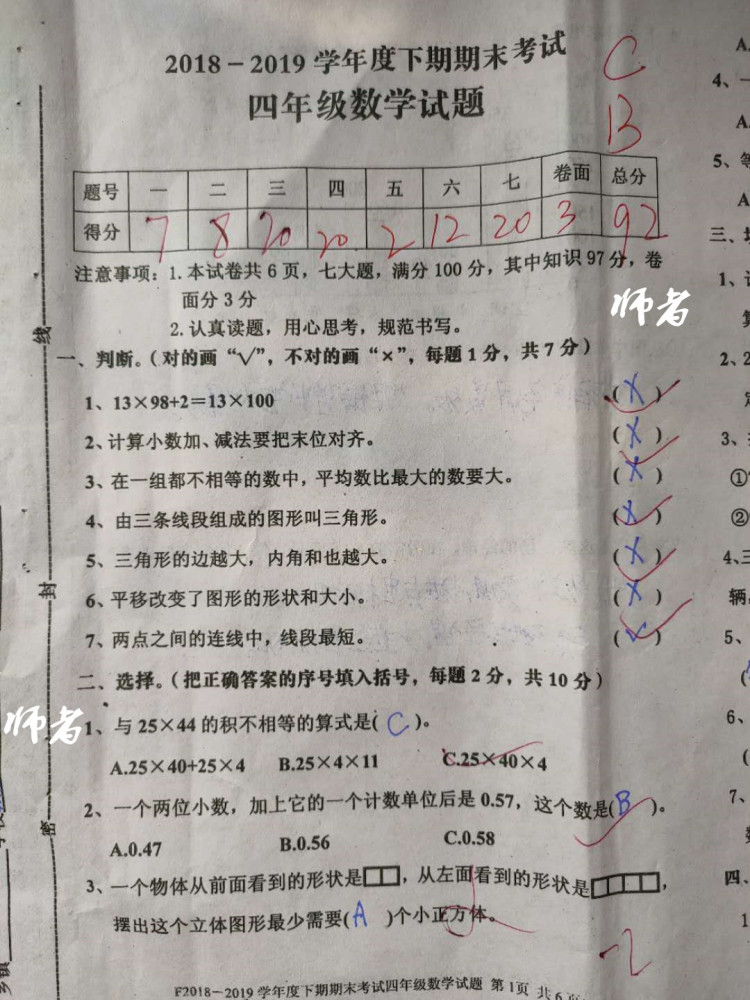 2018－2019 学年度下期期末考试
四年级数学试题
C
B
题号 一 二 三 四 五 六 七 卷面 总分
得分 7 8 20 20 2 12 20 3 92
注意事项：1.本试卷共 6 页，七大题，满分 100 分，其中知识 97 分，卷
面分 3 分
师者
2.认真读题，用心思考，规范书写。
一、判断。（对的画“√”，不对的画“×”，每题 1 分，共 7 分）
1、13×98+2＝13×100 (×)
2、计算小数加、减法要把末位对齐。 (×)
3、在一组都不相等的数中，平均数比最大的数要大。 (×)
4、由三条线段组成的图形叫三角形。 (×)
5、三角形的边越大，内角和也越大。 (×)
6、平移改变了图形的形状和大小。 (×)
7、两点之间的连线中，线段最短。 (√)
二、选择。（把正确答案的序号填入括号，每题 2 分，共 10 分）
师者
1、与 25×44 的积不相等的算式是( C )。
A.25×40+25×4 B.25×4×11 C.25×40×4
2、一个两位小数，加上它的一个计数单位后是 0.57，这个数是( B )。
A.0.47 B.0.56 C.0.58
3、一个物体从前面看到的形状是，从左面看到的形状是，
摆出这个立体图形最少需要( A )个小正方体。
-2
F2018－2019 学年度下期期末考试四年级数学试题 第 1页 共 6
线
封
密
乡镇
A.
4、
A
5、
A
三、
1、
2、2
3、
①
②
4、三
辆
5、
6、
7、
四、
1